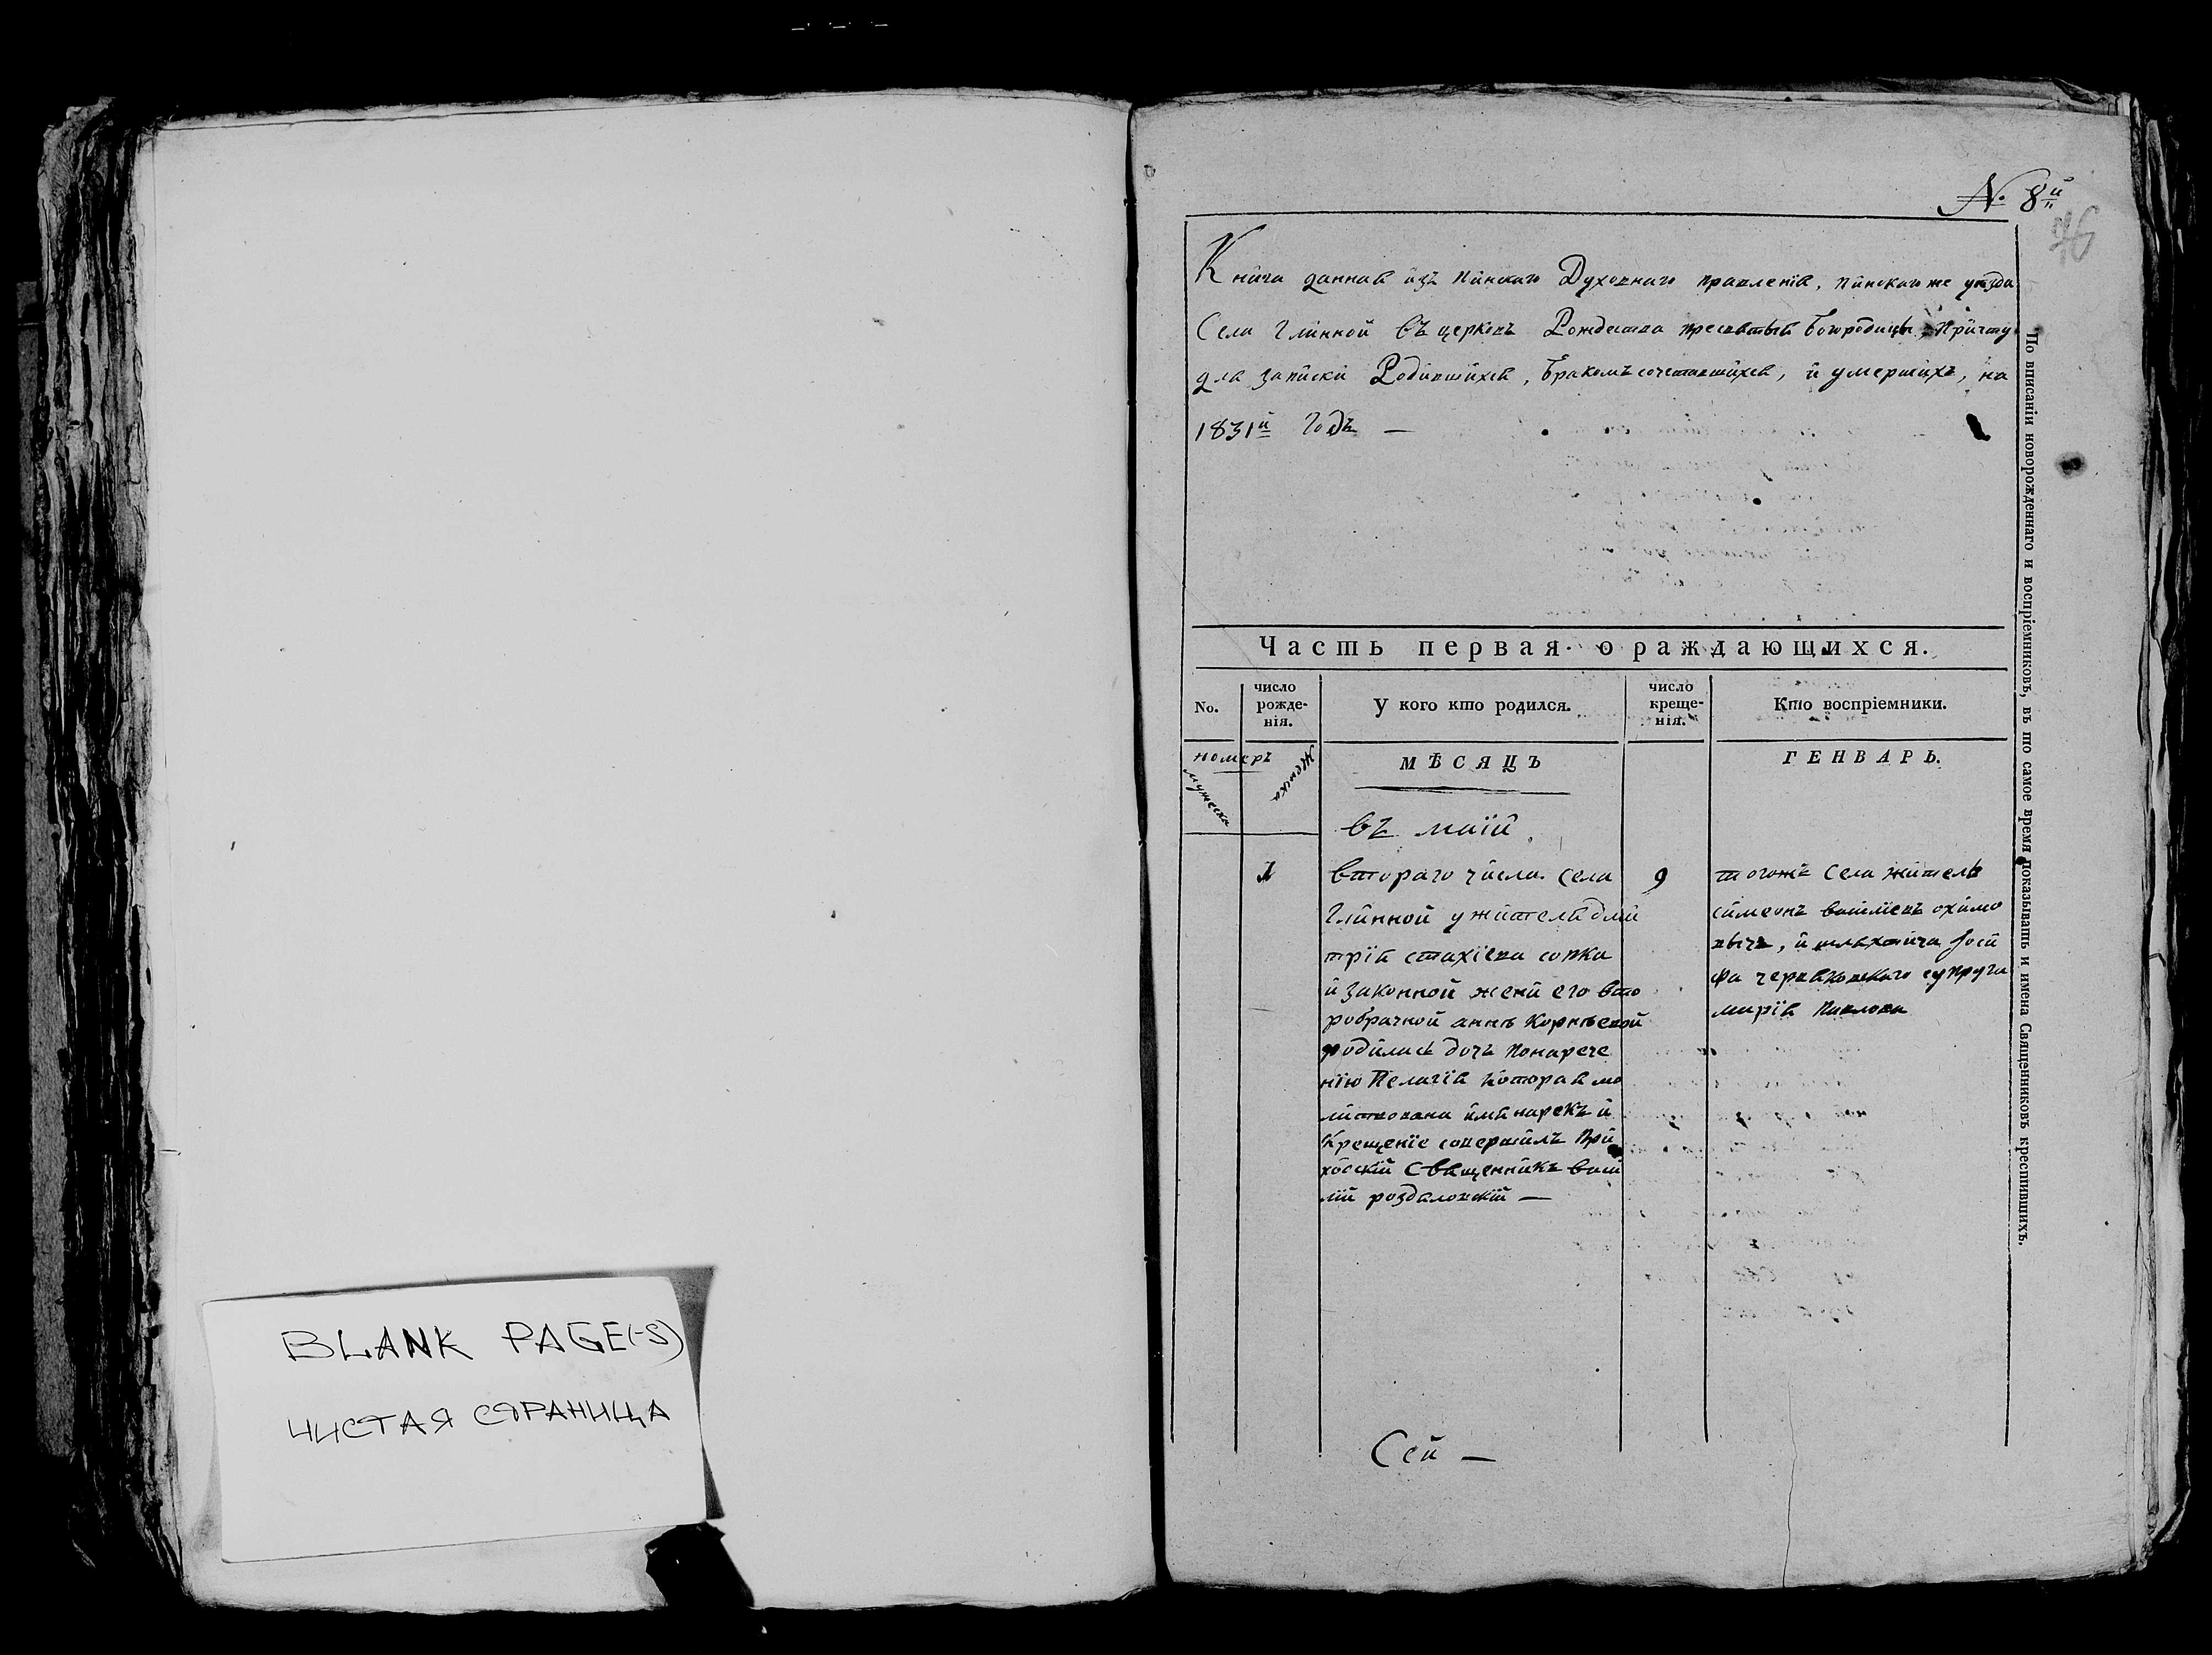 BLANK PAGE(-S)
ЧИСТАЯ СТРАНИЦА
№ 8й
Книга данная изъ Пинскаго Духовнаго правленія, Пинскаго же уѣзда
Села Глинной въ церковь Рождества пресвятыя Богородицы Причту
для записки Родившихся, Бракомъ сочетавшихся, и умершихъ, на
1831й Годъ —
Часть первая о раждающихся.
No.
число
рожде-
нія.
У кого кто родился.
число
креще-
нія.
Кто воспріемники.
номеръ
мужеска
женска
МѢСЯЦЪ
ГЕНВАРЬ.
въ маій
1
втораго числа Села
Глинной у жителя дми
трія стахіева сопка
и законной жени его вто
робрачной аннѣ Корнѣевой
родилась дочь понарече
нію Пелагія которая мо
литвована имя нарекъ и
Крещеніе совершилъ При
хоскій Священникъ васи
лій
9
тогожъ Села житель
симеонъ
вычъ, и шляхтича Іоси
фа супруга
марія Павлова
Сей —
По вписаніи новорожденнаго и воспріемниковъ, въ то самое время показывать и имена Священниковъ крестившихъ.